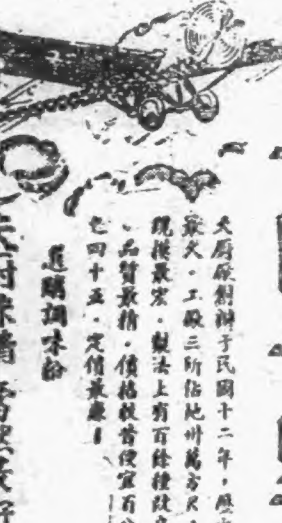 天廚廠創辦于民國十二年，歷史
最久，工廠三所佔地卅萬方尺，
規模最宏，製法上有百餘種改良
，品質最精，價格較昔便宜百分
之四十五，定價最廉！
選購調味粉